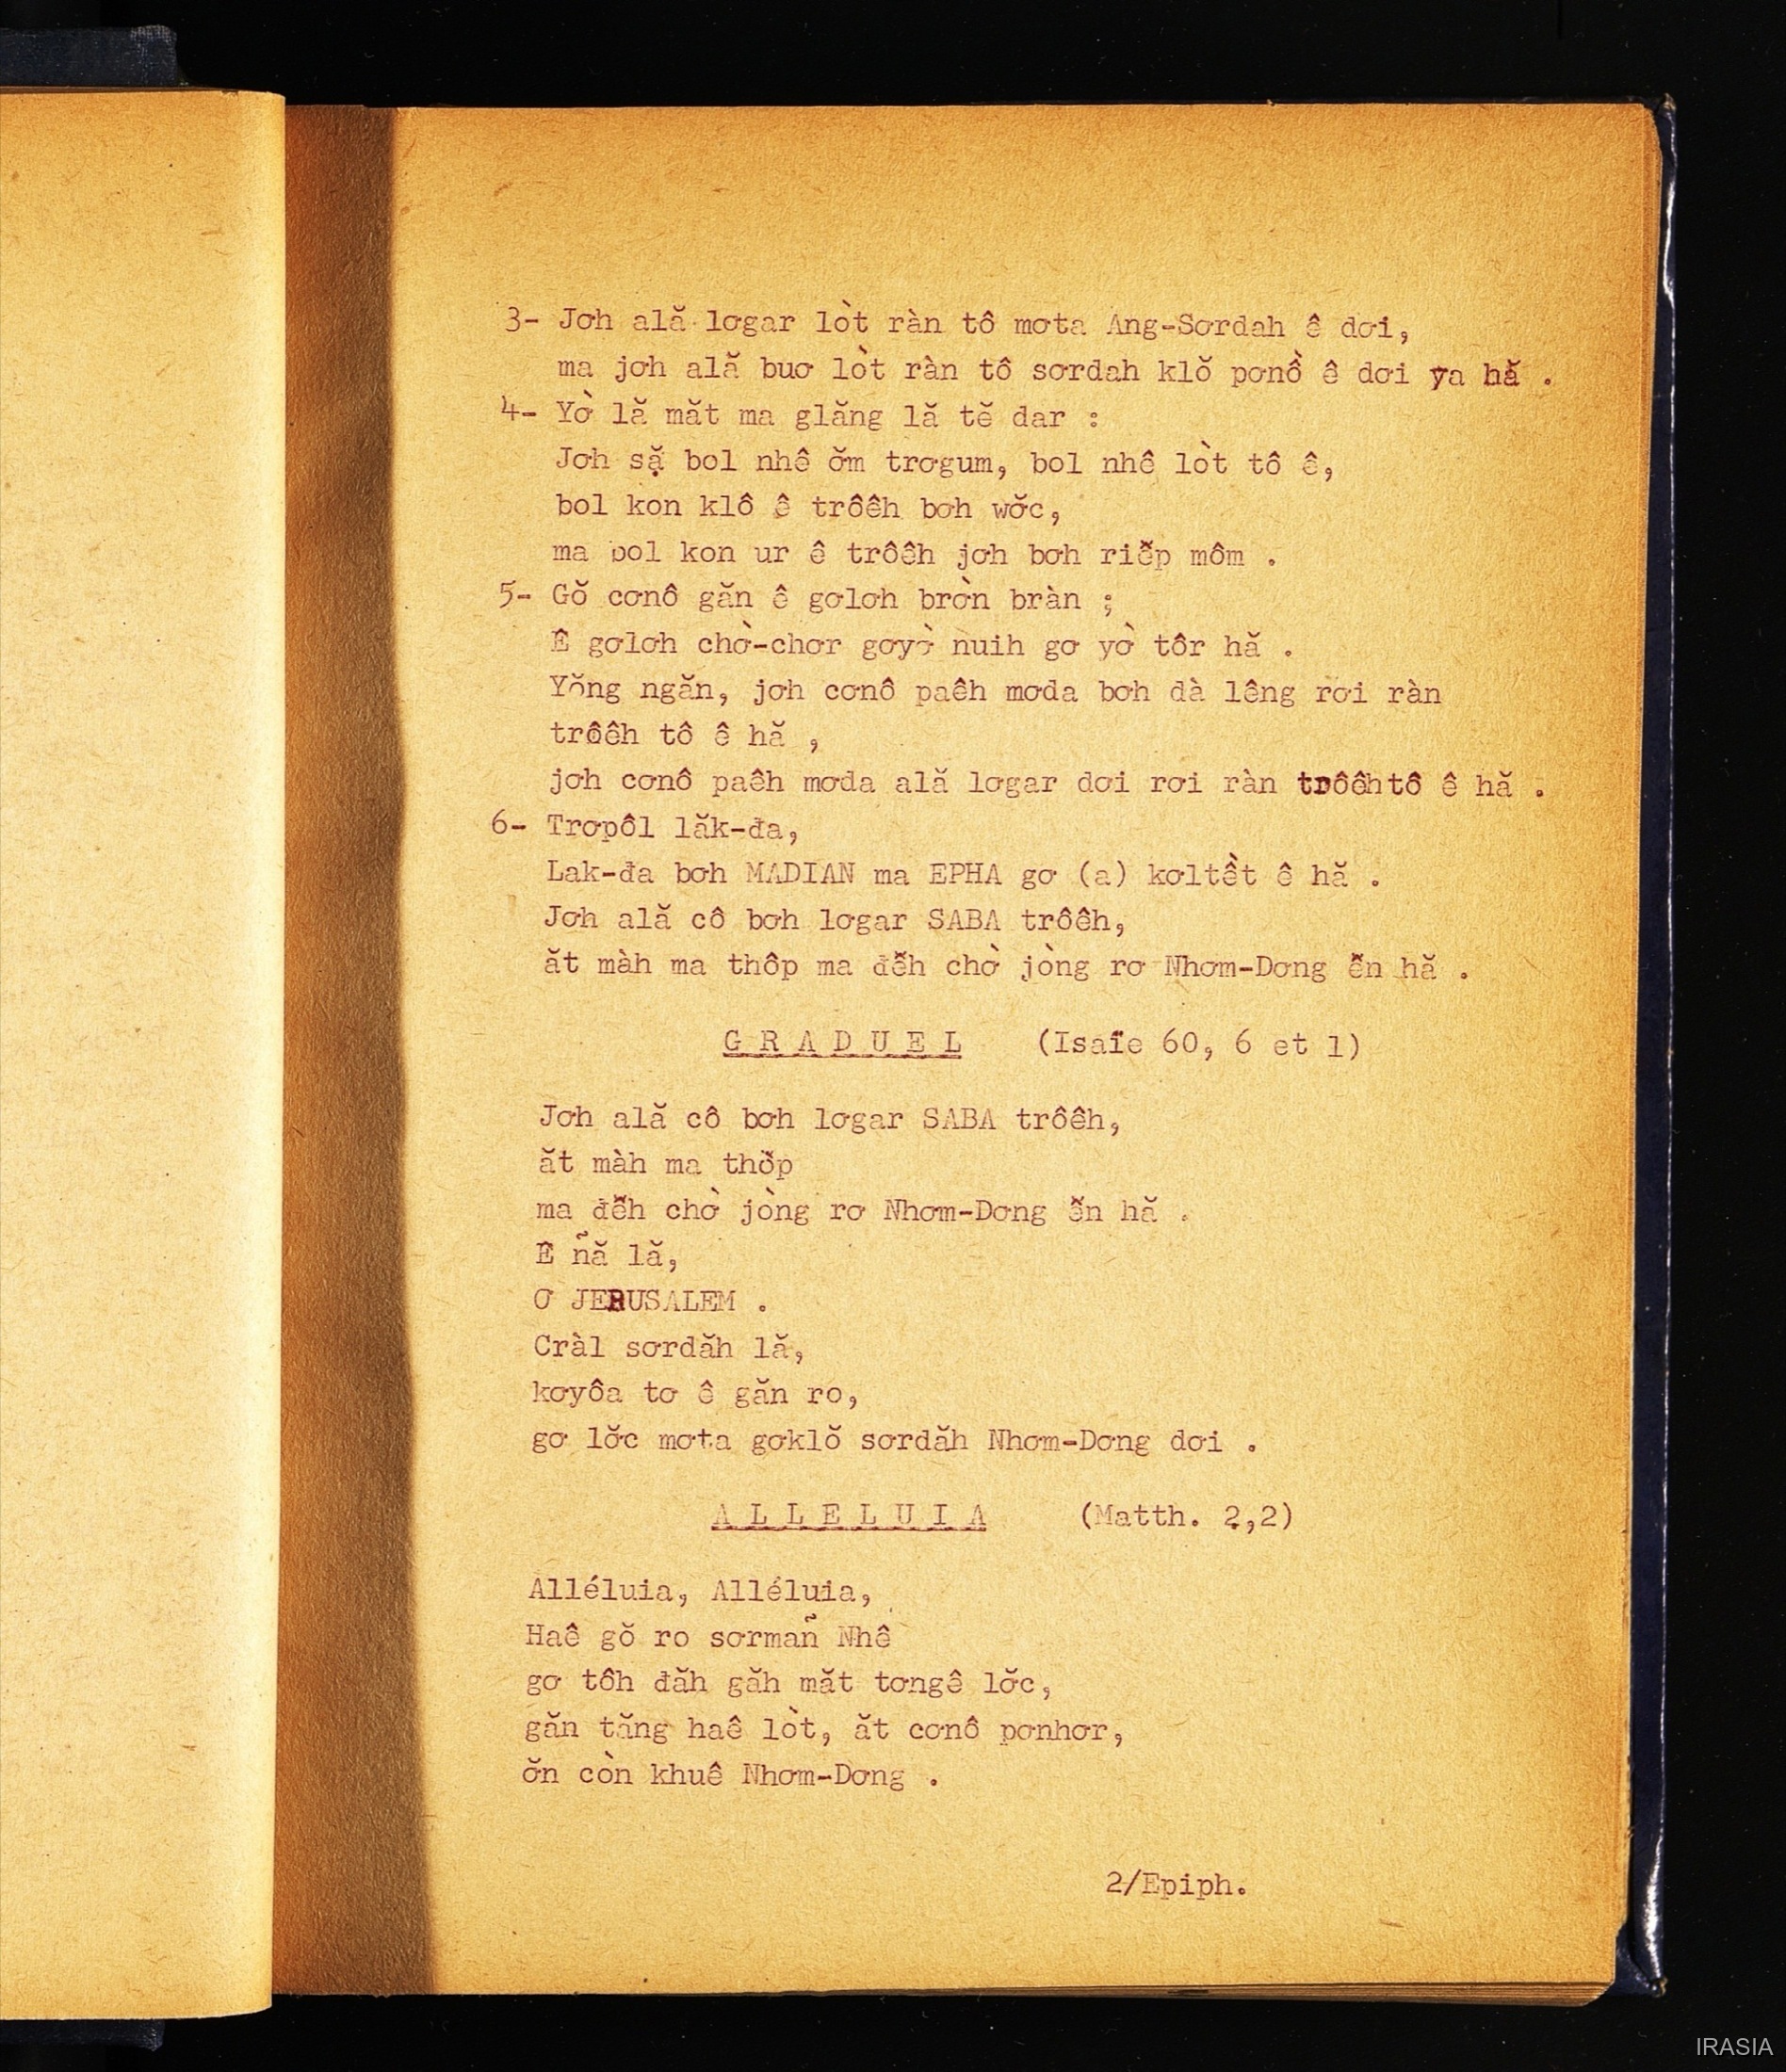 3- Jơh ală lơgar lòt ràn tô mơta Ang-Sơrdah ê dơi,
ma jơh ală buơ lòt ràn tô sơrdah klŏ pơnồ ê dơi ya hă .
4- Yờ lă măt ma glăng lă tĕ dar :
Jơh sặ bol nhê ơ̆m trơgum, bol nhê lòt tô ê,
bol kon klô ê trôêh bơh wơ̆c,
ma bol kon ur ê trôêh jơh bơh riê̆p môm .
5- Gŏ cơnô găn ê gơlơh brờn bràn ;
Ê gơlơh chờ-chơr gơyờ nuih gơ yờ tôr hă .
Yŏng ngăn, jơh cơnô paêh mơda bơh dà lêng rơi ràn
trôêh tô ê hă ,
jơh cơnô paêh mơda ală lơgar dơi rơi ràn trôêh tô ê hă .
6- Trơpôl lăk-đa,
Lak-đa bơh MADIAN ma EPHA gơ (a) kơltềt ê hă .
Jơh ală cô bơh lơgar SABA trôêh,
ăt màh ma thôp ma đê̆h chờ jòng rơ Nhơm-Dơng ê̆n hă .
G R A D U E L (Isaïe 60, 6 et 1)
Jơh ală cô bơh lơgar SABA trôêh,
ăt màh ma thô̆p
ma đê̆h chờ jòng rơ Nhơm-Dơng ê̆n hă .
Ê ñă lă,
Ơ JERUSALEM .
Cràl sơrdăh lă,
kơyôa tơ ê găn ro,
gơ lơ̆c mơta gơklŏ sơrdăh Nhơm-Dơng dơi .
A L L E L U I A (Matth. 2,2)
Alléluia, Alléluia,
Haê gŏ ro sơrmañ Nhê
gơ tôh đăh găh măt tơngê lơ̆c,
găn tăng haê lòt, ăt cơnô pơnhơr,
ơ̆n còn khuê Nhơm-Dơng .
2/Epiph.
IRASIA